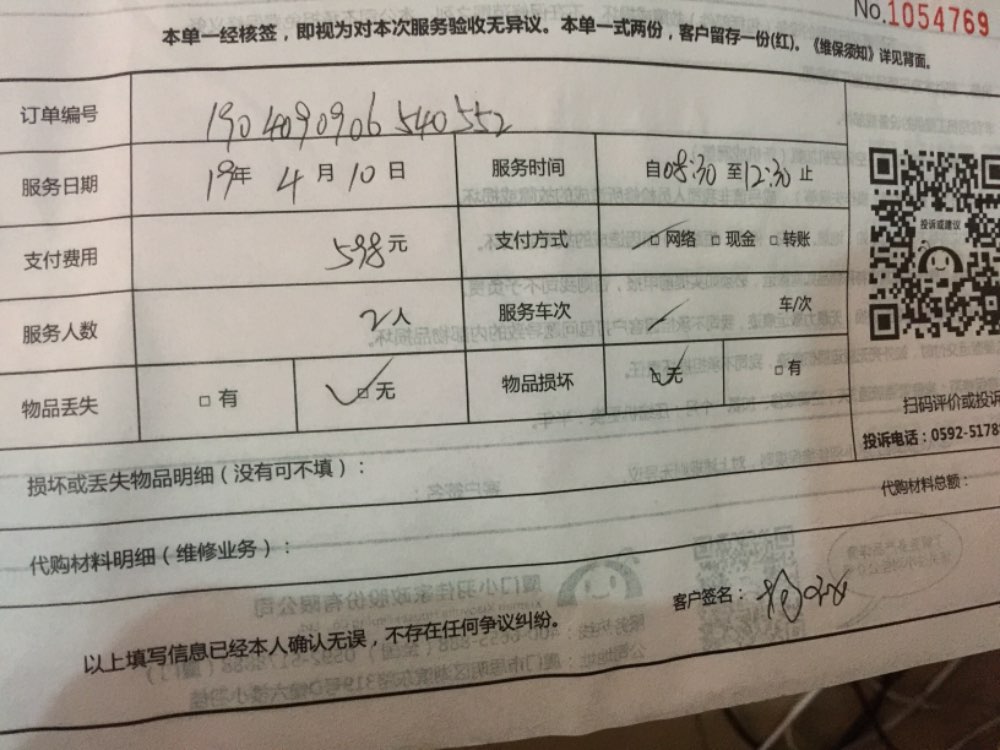 No.1054769
本单一经核签，即视为对本次服务验收无异议。本单一式两份，客户留存一份(红)。《维保须知》详见背面。
订单编号 1904090906540552
服务日期 19年 4 月 10 日 服务时间 自08:30 至12:30 止
支付费用 598元 支付方式 □ 网络 □ 现金 □ 转账
投诉或建议
服务人数 2人 服务车次 车/次
物品丢失 □ 有 □ 无 物品损坏 □ 无 □ 有
扫码评价或投诉
投诉电话：0592-5178
损坏或丢失物品明细（没有可不填）：
代购材料总额：
代购材料明细（维修业务）：
客户签名：
以上填写信息已经本人确认无误，不存在任何争议纠纷。